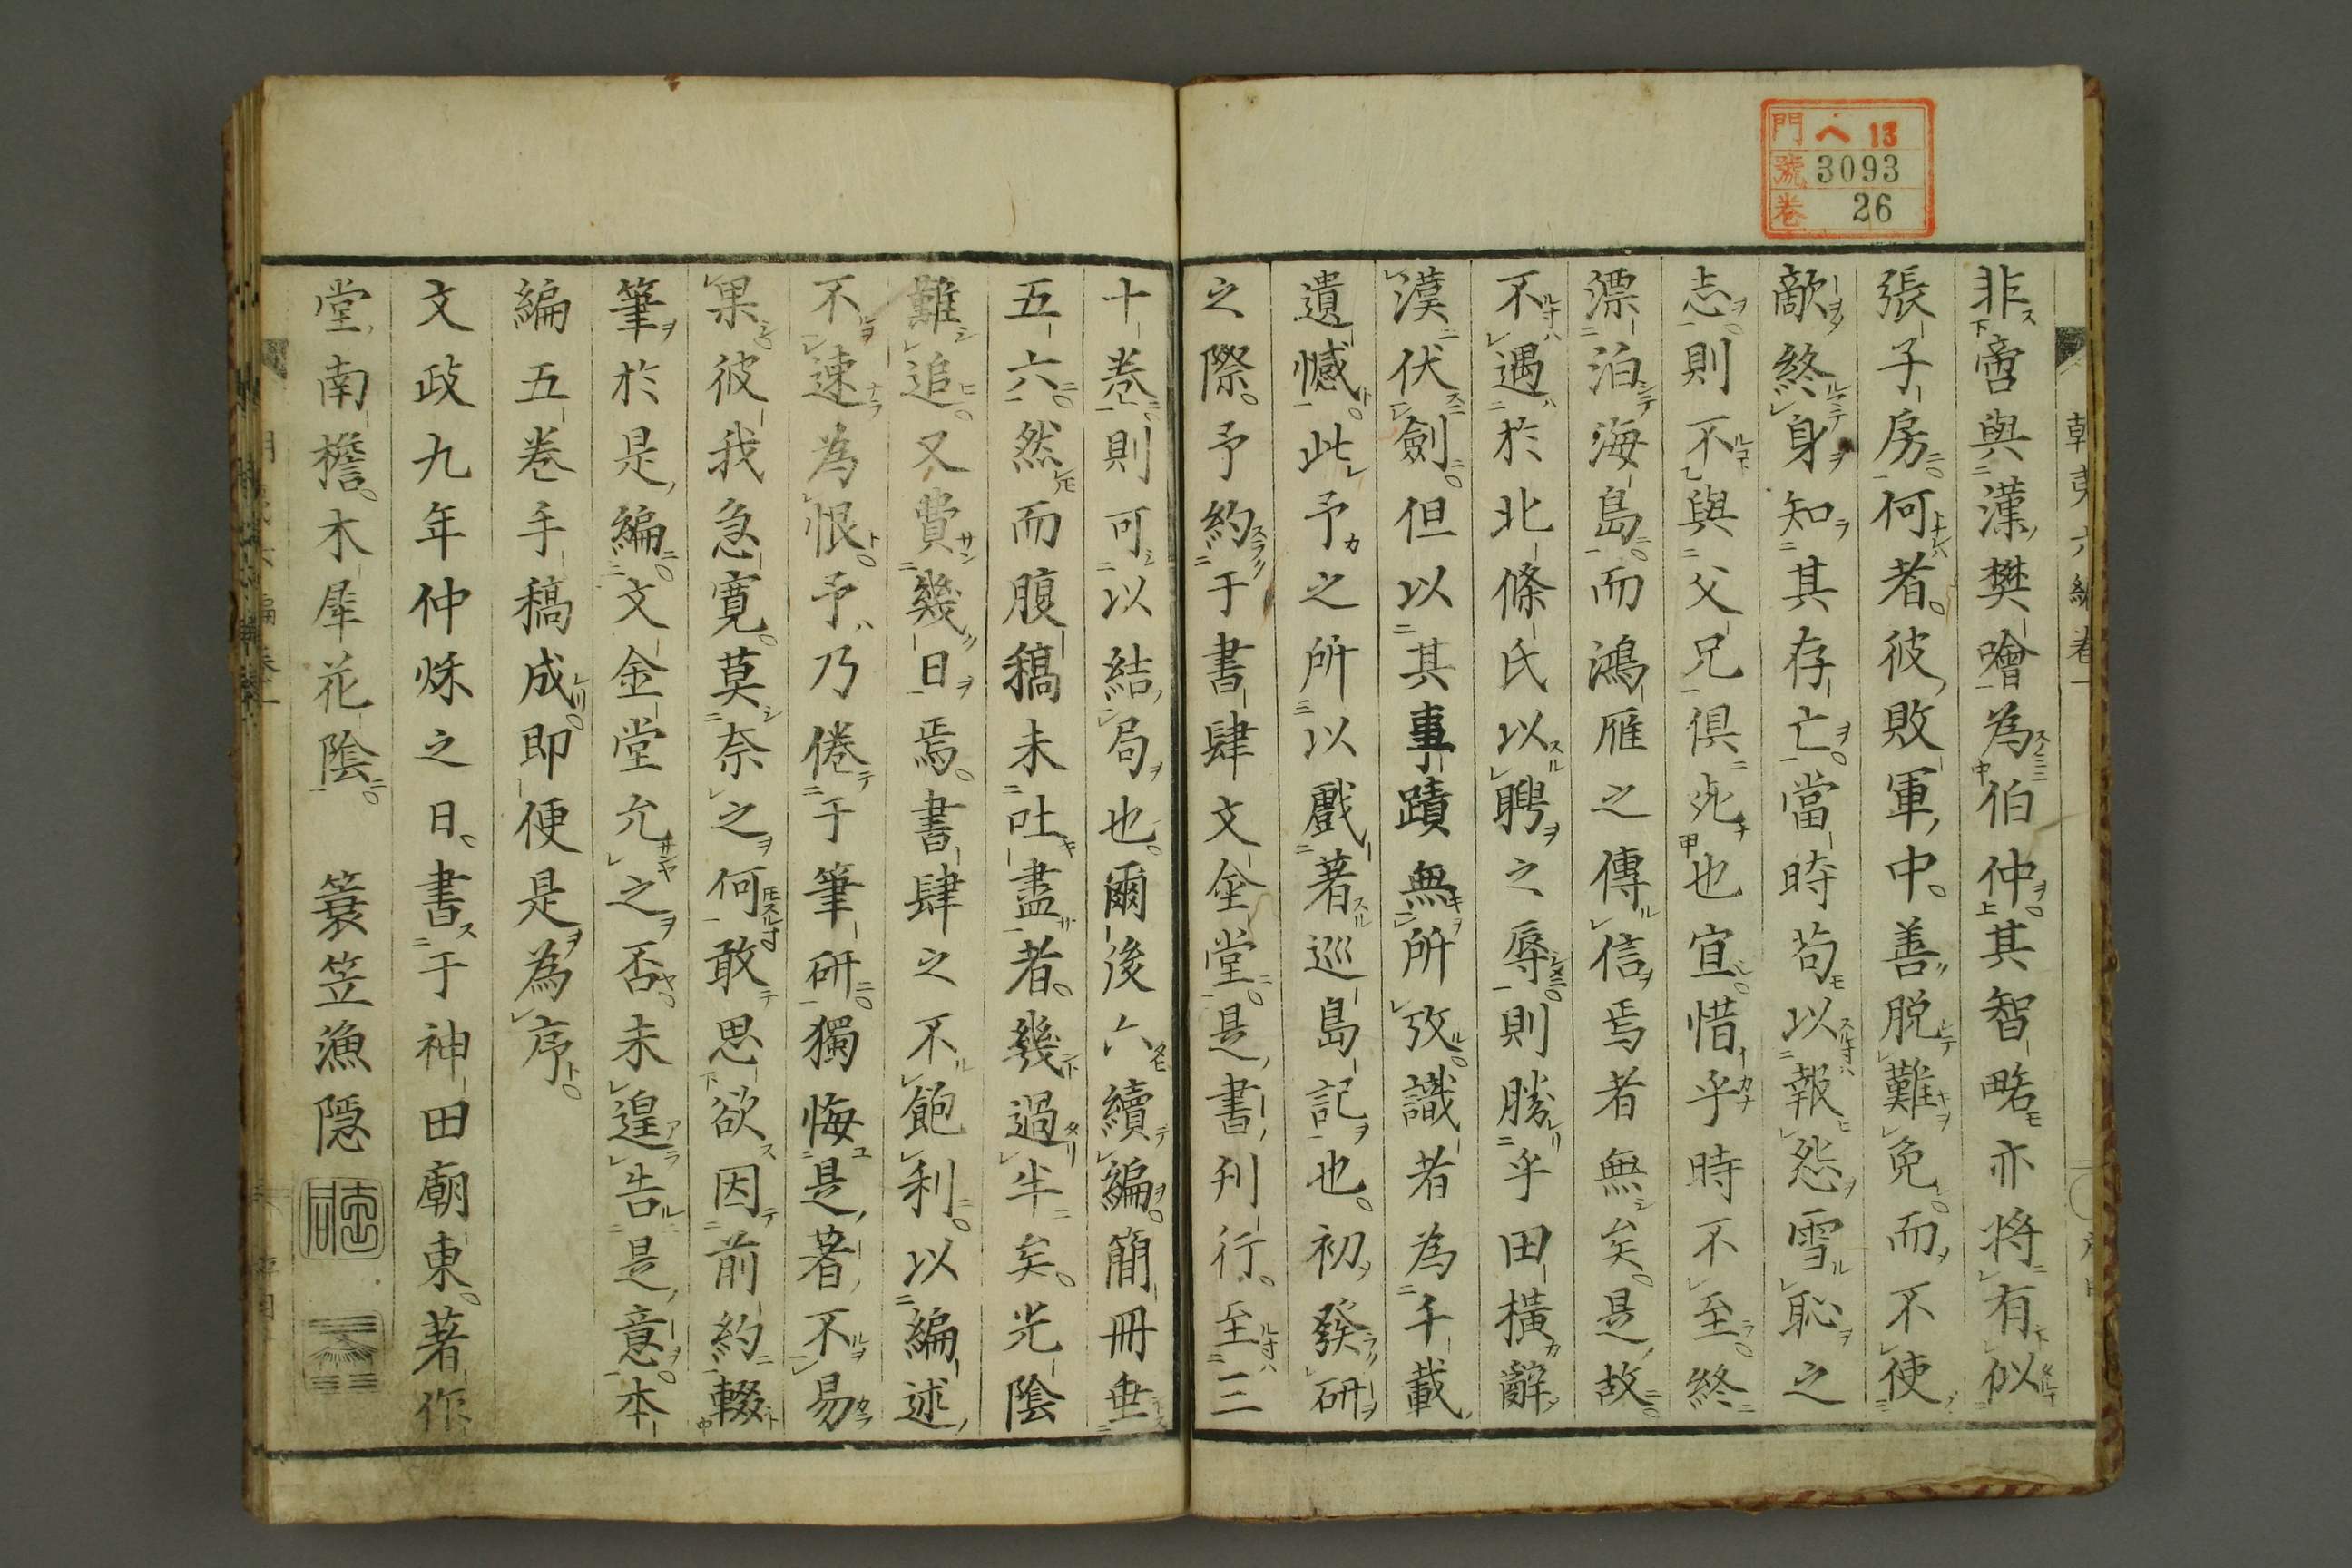 門 ヘ 13
號 3093
卷 26
朝夷六編卷一
非啻與漢樊噲為伯仲其智略亦将有似
張子房何者彼敗軍中善脱難免而不使
敵終身知其存亡當時苟以報怨雪恥之
志則不與父兄俱死也宜惜乎時不至終
漂泊海島而鴻雁之傳信焉者無矣是故
不遇於北條氏以聘之辱則勝乎田横辭
漢伏劍但以其事蹟無所攷識者為千載
遺憾此予之所以戲著巡島記也初發研
之際予約于書肆文金堂是書刊行至三
十卷則可以結局也爾後六續編簡冊垂
五六然而腹稿未吐盡者幾過半矣光陰
難追又費幾日焉書肆之不飽利以編述
不速為恨予乃倦于筆研獨悔是著不易
果彼我急寛莫奈之何敢思欲因前約輟
筆於是編文金堂允之否未遑告是意本
編五卷手稿成即便是為序
文政九年仲秌之日書于神田廟東著作
堂南檐木犀花陰 簑笠漁隠